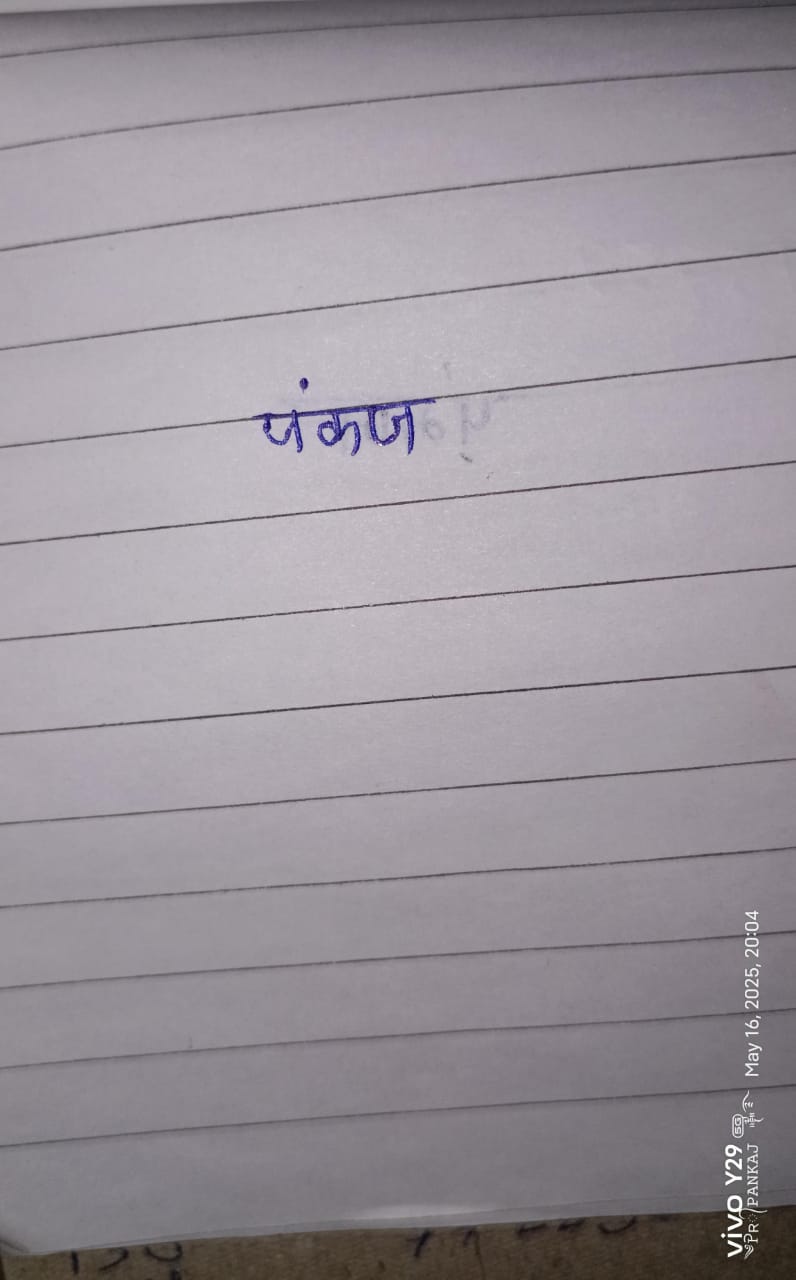 पंकज
vivo Y29 5G May 16, 2025, 20:04
PANKAJ